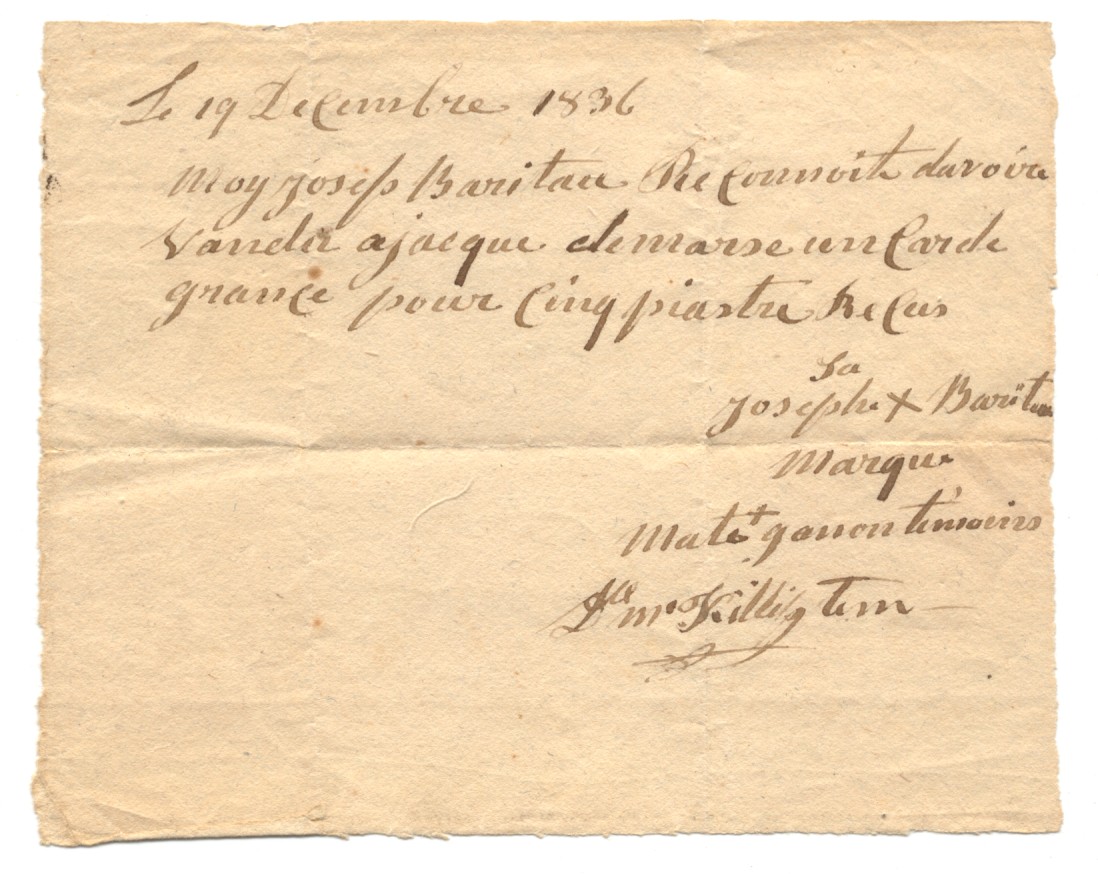 Le 19 Decembre 1836
Moy Joseps Baritau Reconnoite davoire
Vandu a jacque demarse un Carde
grance pour Cinq piastre Recus
Sa
Josephe X Baritau
Marque
Mate + ganon temoins
Mc Killig tem